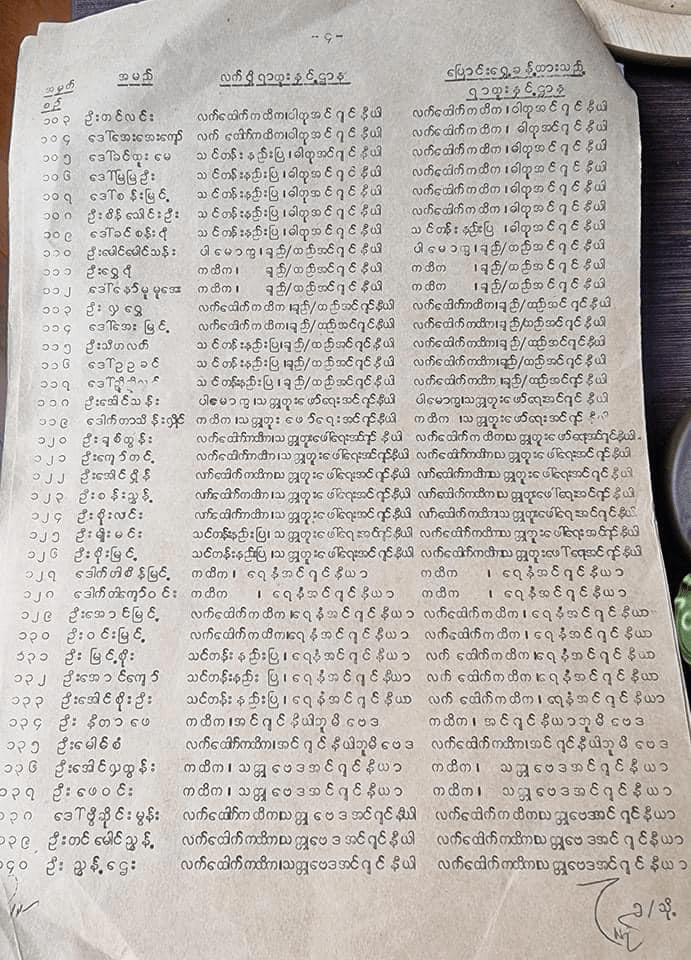 -၄-
အမှတ်စဉ် အမည် လက်ရှိရာထူးနှင့်ဌာန ပြောင်းရွှေ့ခန့်ထားသည့်
ရာထူးနှင့်ဌာန
၁၀၃ ဦးတင်လင်း လက်ထောက်ကထိက၊ဓါတုအင်ဂျင်နီယာ လက်ထောက်ကထိက၊ဓါတုအင်ဂျင်နီယာ
၁၀၄ ဒေါ်အေးအေးကျော် လက်ထောက်ကထိက၊ဓါတုအင်ဂျင်နီယာ လက်ထောက်ကထိက၊ ဓါတုအင်ဂျင်နီယာ
၁၀၅ ဒေါ်ခင်ထူးမေ သင်တန်းနည်းပြ၊ဓါတုအင်ဂျင်နီယာ လက်ထောက်ကထိက၊ဓါတုအင်ဂျင်နီယာ
၁၀၆ ဒေါ်မြမြဦး သင်တန်းနည်းပြ၊ဓါတုအင်ဂျင်နီယာ လက်ထောက်ကထိက၊ဓါတုအင်ဂျင်နီယာ
၁၀၇ ဒေါ်စန်းမြင့် သင်တန်းနည်းပြ၊ဓါတုအင်ဂျင်နီယာ လက်ထောက်ကထိက၊ဓါတုအင်ဂျင်နီယာ
၁၀၈ ဦးစိန်သောင်းဦး သင်တန်းနည်းပြ၊ဓါတုအင်ဂျင်နီယာ လက်ထောက်ကထိက၊ဓါတုအင်ဂျင်နီယာ
၁၀၉ ဒေါ်ခင်စန်းရီ သင်တန်းနည်းပြ၊ဓါတုအင်ဂျင်နီယာ သင်တန်းနည်းပြ၊ဓါတုအင်ဂျင်နီယာ
၁၁၀ ဦးမောင်မောင်သန်း ပါမောက္ခ၊ချည်/ထည်အင်ဂျင်နီယာ ပါမောက္ခ၊ချည်/ထည်အင်ဂျင်နီယာ
၁၁၁ ဦးရွှေရီ ကထိက၊ ချည်/ထည်အင်ဂျင်နီယာ ကထိက ၊ချည်/ထည်အင်ဂျင်နီယာ
၁၁၂ ဒေါ်နော်မူမူအေး ကထိက၊ ချည်/ထည်အင်ဂျင်နီယာ ကထိက ၊ချည်/ထည်အင်ဂျင်နီယာ
၁၁၃ ဦးလှရွှေ လက်ထောက်ကထိက၊ချည်/ထည်အင်ဂျင်နီယာ လက်ထောက်ကထိက၊ချည်/ထည်အင်ဂျင်နီယာ
၁၁၄ ဒေါ်အေးမြင့် လက်ထောက်ကထိက၊ချည်/ထည်အင်ဂျင်နီယာ လက်ထောက်ကထိက၊ချည်/ထည်အင်ဂျင်နီယာ
၁၁၅ ဦးသီဟလတ် သင်တန်းနည်းပြ၊ချည်/ထည်အင်ဂျင်နီယာ လက်ထောက်ကထိက၊ချည်/ထည်အင်ဂျင်နီယာ
၁၁၆ ဒေါ်ဥဥခင် သင်တန်းနည်းပြ၊ချည်/ထည်အင်ဂျင်နီယာ လက်ထောက်ကထိက၊ချည်/ထည်အင်ဂျင်နီယာ
၁၁၇ သင်တန်းနည်းပြ၊ချည်/ထည်အင်ဂျင်နီယာ လက်ထောက်ကထိက၊ချည်/ထည်အင်ဂျင်နီယာ
၁၁၈ ဦးအောင်သန်း ပါမောက္ခ၊သတ္တုတူးဖော်ရေးအင်ဂျင်နီယာ ပါမောက္ခ၊သတ္တုတူးဖော်ရေးအင်ဂျင်နီယာ
၁၁၉ ဒေါက်တာသိန်းလှိုင် ကထိက၊သတ္တုတူးဖော်ရေးအင်ဂျင်နီယာ ကထိက ၊သတ္တုတူးဖော်ရေးအင်ဂျင်
၁၂၀ ဦးချစ်ထွန်း လက်ထောက်ကထိက၊သတ္တုတူးဖော်ရေးအင်ဂျင်နီယာ လက်ထောက်ကထိက၊သတ္တုတူးဖော်ရေးအင်ဂျင်နီယာ
၁၂၁ ဦးကျော်တင့် လက်ထောက်ကထိက၊သတ္တုတူးဖော်ရေးအင်ဂျင်နီယာ လက်ထောက်ကထိက၊သတ္တုတူးဖော်ရေးအင်ဂျင်နီယာ
၁၂၂ ဦးအောင်ရှိန် လက်ထောက်ကထိက၊သတ္တုတူးဖော်ရေးအင်ဂျင်နီယာ လက်ထောက်ကထိက၊သတ္တုတူးဖော်ရေးအင်ဂျင်နီယာ
၁၂၃ ဦးစန်းညွန့် လက်ထောက်ကထိက၊သတ္တုတူးဖော်ရေးအင်ဂျင်နီယာ လက်ထောက်ကထိက၊သတ္တုတူးဖော်ရေးအင်ဂျင်နီယာ
၁၂၄ ဦးစိုးလင်း လက်ထောက်ကထိက၊သတ္တုတူးဖော်ရေးအင်ဂျင်နီယာ လက်ထောက်ကထိက၊သတ္တုတူးဖော်ရေးအင်ဂျင်နီယာ
၁၂၅ ဦးမျိုးမင်း သင်တန်းနည်းပြ၊သတ္တုတူးဖော်ရေးအင်ဂျင်နီယာ လက်ထောက်ကထိက၊သတ္တုတူးဖော်ရေးအင်ဂျင်နီယာ
၁၂၆ ဦးစိုးမြင့် သင်တန်းနည်းပြ၊သတ္တုတူးဖော်ရေးအင်ဂျင်နီယာ လက်ထောက်ကထိက၊သတ္တုတူးဖော်ရေးအင်ဂျင်နီယာ
၁၂၇ ဒေါက်တာစိန်မြင့် ကထိက၊ ရေနံအင်ဂျင်နီယာ ကထိက ၊ ရေနံအင်ဂျင်နီယာ
၁၂၈ ဒေါက်တာကျော်ဝင်း ကထိက ၊ ရေနံအင်ဂျင်နီယာ ကထိက ၊ ရေနံအင်ဂျင်နီယာ
၁၂၉ ဦးအောင်မြင့် လက်ထောက်ကထိက၊ရေနံအင်ဂျင်နီယာ လက်ထောက်ကထိက၊ရေနံအင်ဂျင်နီယာ
၁၃၀ ဦးဝင်းမြင့် လက်ထောက်ကထိက၊ရေနံအင်ဂျင်နီယာ လက်ထောက်ကထိက၊ရေနံအင်ဂျင်နီယာ
၁၃၁ ဦးမြင့်စိုး သင်တန်းနည်းပြ၊ရေနံအင်ဂျင်နီယာ လက်ထောက်ကထိက၊ရေနံအင်ဂျင်နီယာ
၁၃၂ ဦးအောင်ကျော် သင်တန်းနည်းပြ၊ရေနံအင်ဂျင်နီယာ လက်ထောက်ကထိက၊ရေနံအင်ဂျင်နီယာ
၁၃၃ ဦးအောင်စိုးဦး သင်တန်းနည်းပြ၊ရေနံအင်ဂျင်နီယာ လက်ထောက်ကထိက၊ရေနံအင်ဂျင်နီယာ
၁၃၄ ဦးနီတာဖေ ကထိက၊အင်ဂျင်နီယာဘူမိဗေဒ ကထိက၊ အင်ဂျင်နီယာဘူမိဗေဒ
၁၃၅ ဦးမောင်စံ လက်ထောက်ကထိက၊အင်ဂျင်နီယာဘူမိဗေဒ လက်ထောက်ကထိက၊အင်ဂျင်နီယာဘူမိဗေဒ
၁၃၆ ဦးအောင်လှထွန်း ကထိက၊သတ္တုဗေဒအင်ဂျင်နီယာ ကထိက၊ သတ္တုဗေဒအင်ဂျင်နီယာ
၁၃၇ ဦးဖေဝင်း ကထိက၊ သတ္တုဗေဒအင်ဂျင်နီယာ ကထိက၊ သတ္တုဗေဒအင်ဂျင်နီယာ
၁၃၈ ဒေါ်ဖြိုဆိုင်းမွန်း လက်ထောက်ကထိက၊သတ္တုဗေဒအင်ဂျင်နီယာ လက်ထောက်ကထိက၊သတ္တုဗေဒအင်ဂျင်နီယာ
၁၃၉ ဦးတင်မောင်ညွန့် လက်ထောက်ကထိက၊သတ္တုဗေဒအင်ဂျင်နီယာ လက်ထောက်ကထိက၊သတ္တုဗေဒအင်ဂျင်နီယာ
၁၄၀ ဦးညွန့်ဌေး လက်ထောက်ကထိက၊သတ္တုဗေဒအင်ဂျင်နီယာ လက်ထောက်ကထိက၊သတ္တုဗေဒအင်ဂျင်နီယာ
၁/သို့